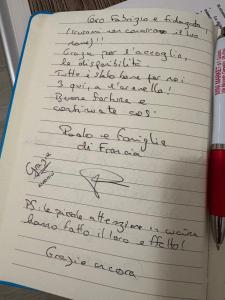 Caro Fabrizio e fidanzata!
(scusami non conoscere il tuo
nome)!!
Grazie per l'accoglia,
la disponibilità
Tutto è stato bene per noi
3 qui, a l'
Buona fortuna e
continuate così
Paolo e famiglia
di Francia
Grazie
PS: le piccole attenzione in cucina
hanno fatto il loro effetto!
Grazie ancora